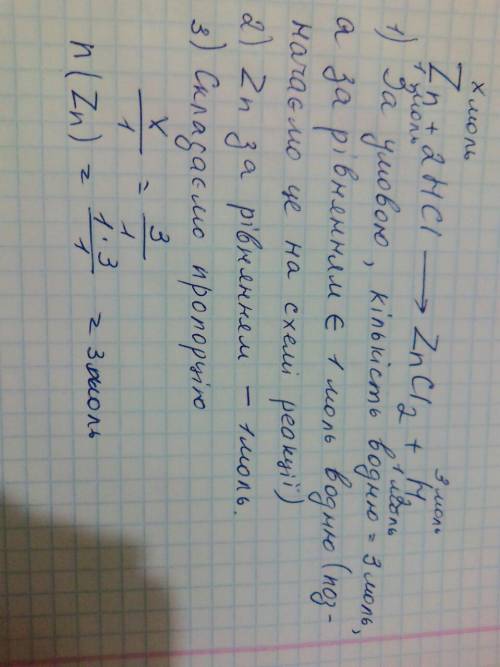 x моль 3 моль
Zn + 2HCl ⟶ ZnCl2 + H2
1 моль 1 моль
1) За умовою, кількість водню = 3 моль,
а за рівнянням є 1 моль водню (поз-
начаємо це на схемі реакції)
2) Zn за рівнянням – 1 моль.
3) Складаємо пропорцію
x/1 = 3/1
n(Zn) = 1·3/1 = 3 моль